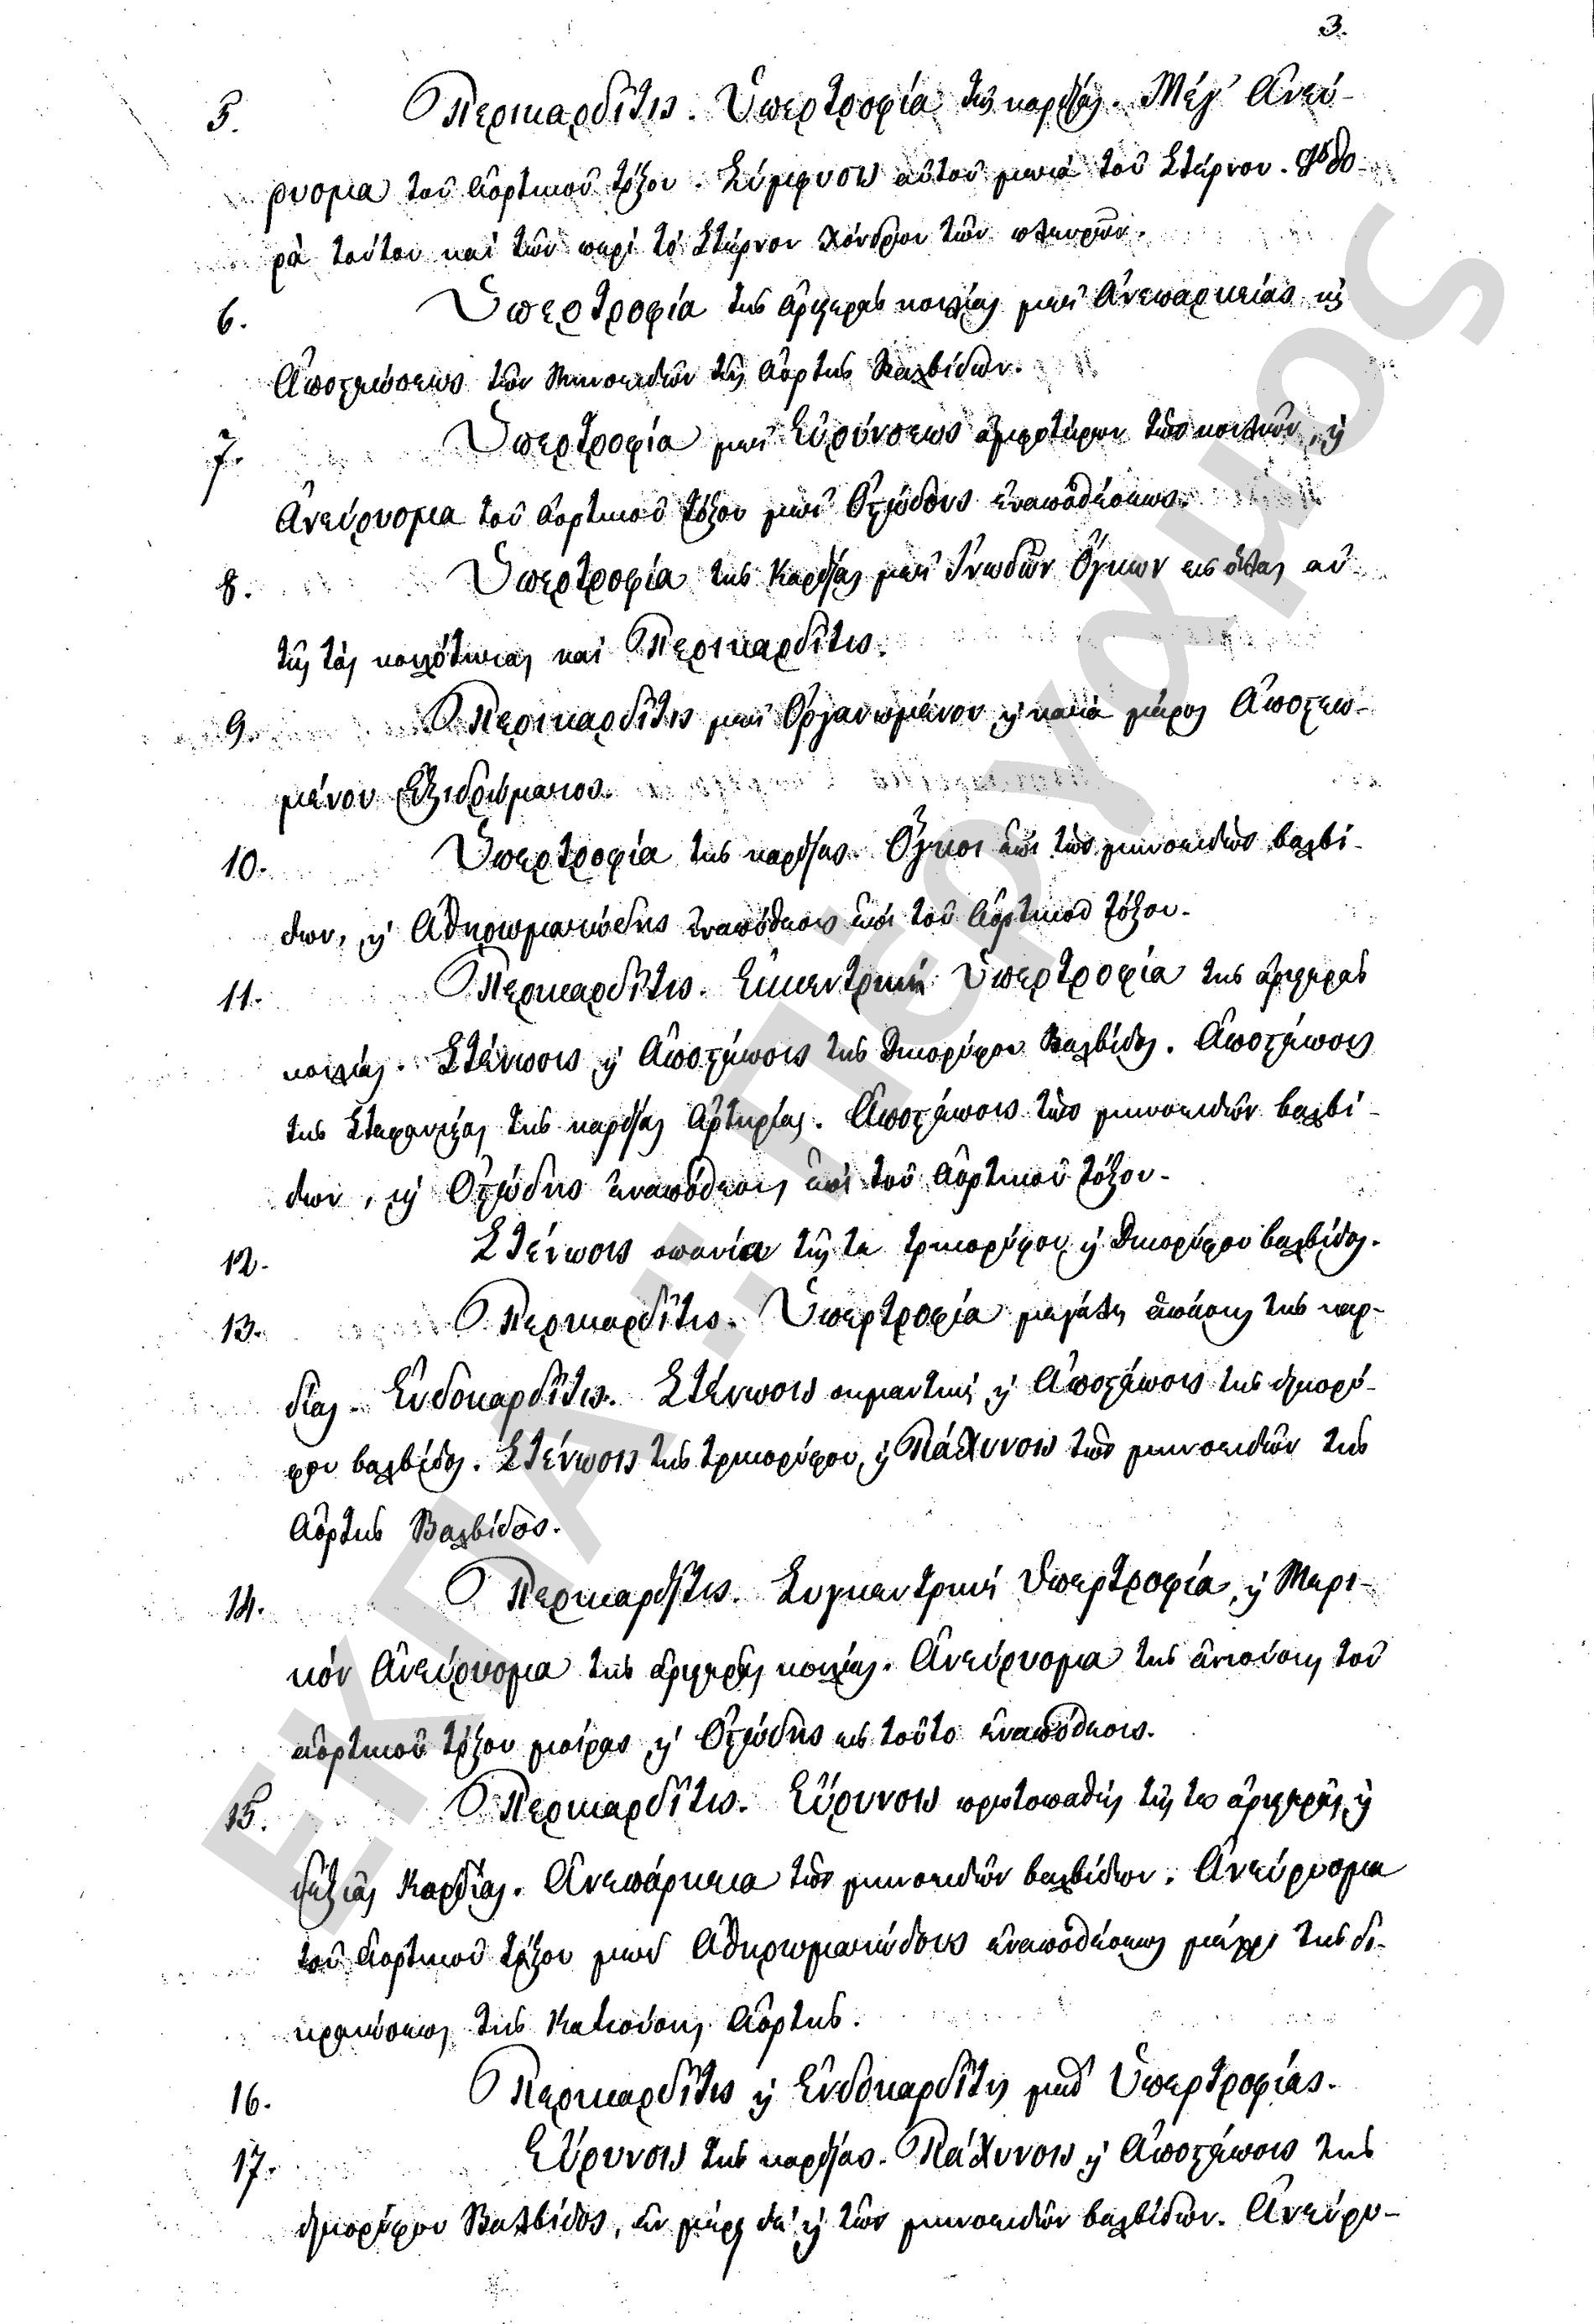 3.
5. Περικαρδῖτις. Ὑπερτροφία τῆς καρδίας. Μέγ' Ἀνεύ-
ρυσμα τοῦ ἀορτικοῦ τόξου. Σύμφυσις αὐτοῦ μετὰ τοῦ Στέρνου. Φθο-
ρὰ τούτου καὶ τῶν περὶ τὸ Στέρνον χόνδρων τῶν πλευρῶν.
6. Ὑπερτροφία τῆς ἀριστερᾶς κοιλίας μετ' Ἀνεπαρκείας κỳ
Ἀποστεώσεως τῶν Μηνοειδῶν τῆς Ἀορτῆς Βαλβίδων.
7. Ὑπερτροφία μετ' Εὐρύνσεως ἀμφοτέρων τῶν κοιλιῶν, κỳ
Ἀνεύρυσμα τοῦ ἀορτικοῦ τόξου μετ' Ὀστώδους ἐναποθέσεως.
8. Ὑπερτροφία τῆς Καρδίας μετ' Ἰνωδῶν Ὄγκων εἰς ὅλας αὐ-
τῆς τὰς κοιλότητας καὶ Περικαρδῖτις.
9. Περικαρδῖτις μετ' Ὀργανωμένου κỳ κατὰ μέρος Ἀποστεω-
μένου Ἐξιδρώματος.
10. Ὑπερτροφία τῆς καρδίας. Ὄγκοι ἐπὶ τῶν μηνοειδῶν βαλβί-
δων, κỳ Ἀθηρωματώδης ἐναπόθεσις ἐπὶ τοῦ Ἀορτικοῦ τόξου.
11. Περικαρδῖτις. Ἐκκεντρικὴ Ὑπερτροφία τῆς ἀριστερᾶς
κοιλίας. Στένωσις κỳ Ἀποστέωσις τῆς Δικορύφου Βαλβίδος. Ἀποστέωσις
τῆς Στεφανιαίας τῆς καρδίας Ἀρτηρίας. Ἀποστέωσις τῶν μηνοειδῶν βαλβί-
δων, κỳ Ὀστώδης ἐναπόθεσις ἐπὶ τοῦ Ἀορτικοῦ τόξου.
12. Στένωσις σπανία τῆς τε τρικορύφου κỳ δικορύφου βαλβίδος.
13. Περικαρδῖτις. Ὑπερτροφία μεγάλη ἁπάσης τῆς καρ-
δίας. Ἐνδοκαρδῖτις. Στένωσις σημαντικὴ κỳ Ἀποστέωσις τῆς δικορύ-
φου βαλβίδος. Στένωσις τῆς τρικορύφου, κỳ Πάχυνσις τῶν μηνοειδῶν τῆς
Ἀορτῆς Βαλβίδος.
14. Περικαρδῖτις. Συγκεντρικὴ Ὑπερτροφία, κỳ Μερι-
κὸν Ἀνεύρυσμα τῆς ἀριστερᾶς κοιλίας. Ἀνεύρυσμα τῆς ἀνιούσης τοῦ
ἀορτικοῦ τόξου μοίρας κỳ Ὀστώδης εἰς τοῦτο ἐναπόθεσις.
15. Περικαρδῖτις. Εὔρυνσις πρωτοπαθὴς τῆς τε ἀριστερᾶς κỳ
δεξιᾶς Καρδίας. Ἀνεπάρκεια τῶν μηνοειδῶν βαλβίδων. Ἀνεύρυσμα
τοῦ ἀορτικοῦ τόξου μετ' Ἀθηρωματώδους ἐναποθέσεως μέχρι τῆς δι-
κρανώσεως τῆς Κατιούσης Ἀορτῆς.
16. Περικαρδῖτις κỳ Ἐνδοκαρδῖτις μεθ' Ὑπερτροφίας.
17. Εὔρυνσις τῆς καρδίας. Πάχυνσις κỳ Ἀποστέωσις τῆς
δικορύφου Βαλβίδος, ἐν μέρει δὲ κỳ τῶν μηνοειδῶν βαλβίδων. Ἀνεύρυ-
ΕΚΠΑ.: Πέργαμος